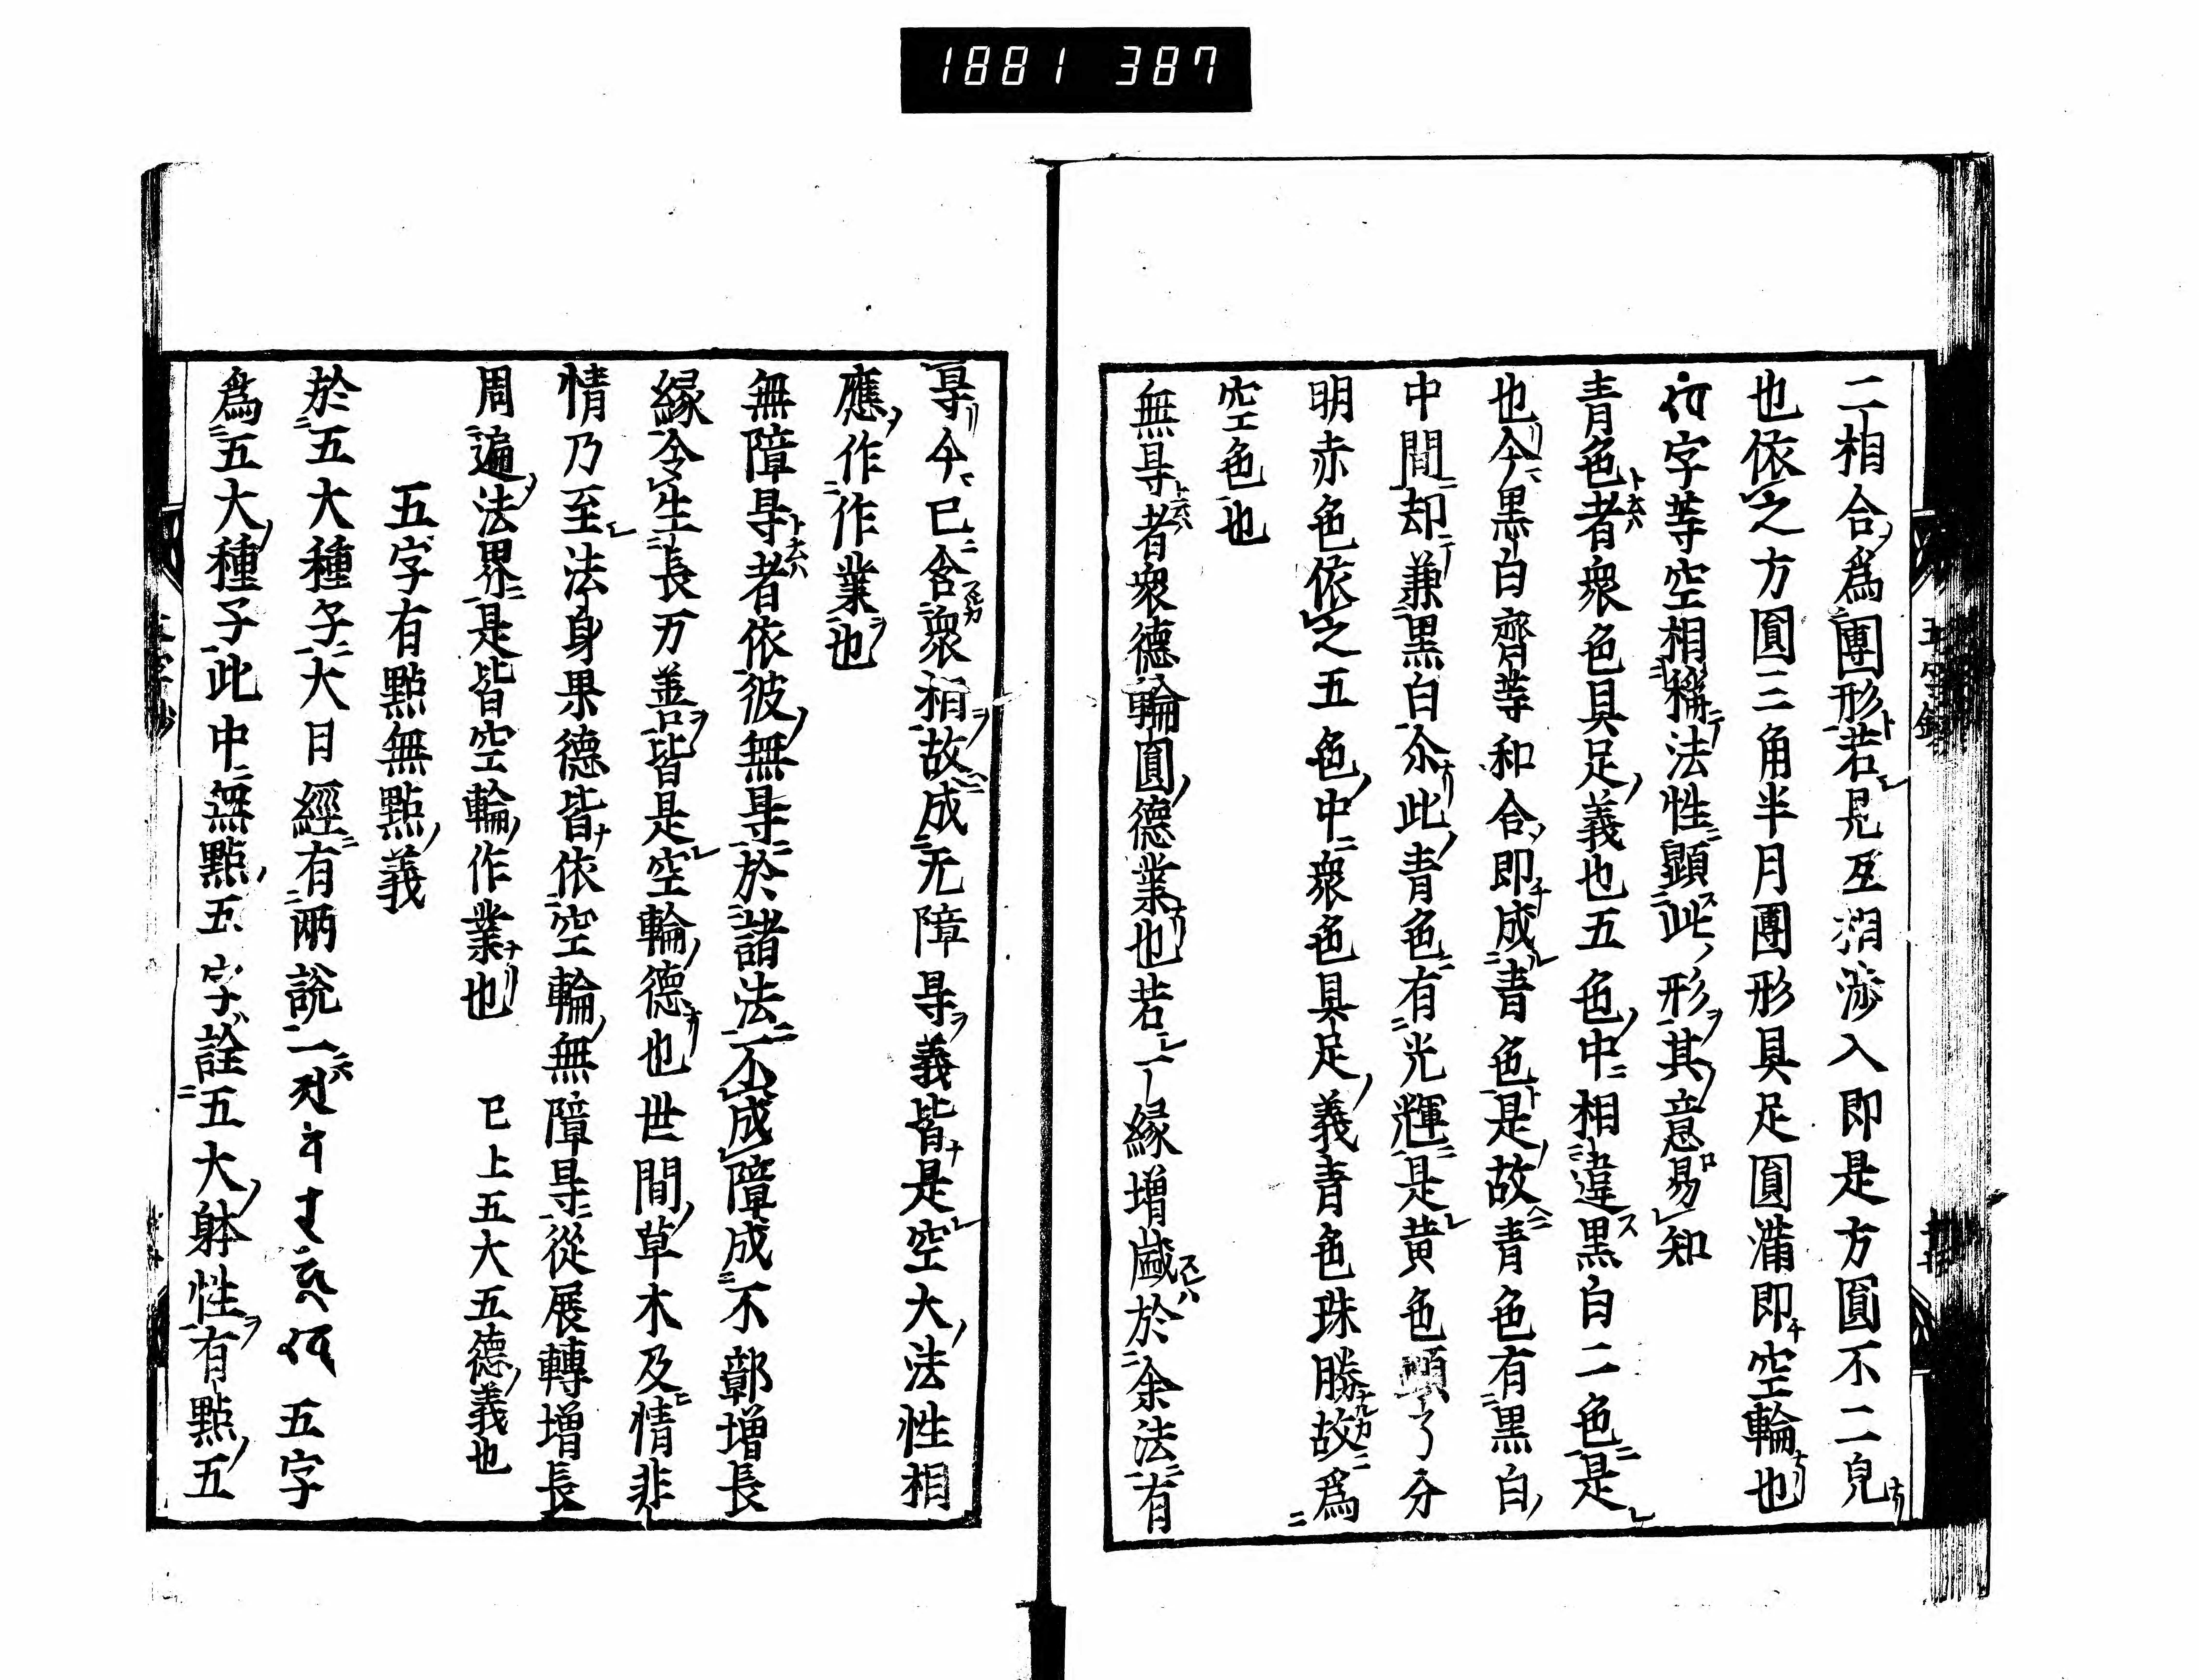 1881 387
二相合爲團形若見互相渉入即是方圓不二皃
也依之方圓三角半月團形具足圓滿即空輪也
字等空相稱法性顯此形其意易知
青色者衆色具足義也五色中相違黒白二色是
也今黒白齊等和合即成青色是故青色有黒白
中間却兼黒白尒此青色有光輝是黄色顯了分
明赤色依之五色中衆色具足義青色珠勝故爲
空色也
無㝵者衆德輪圓德業也若一縁増盛於余法有
㝵今已含衆相故成无障㝵義皆是空大法性相
應作作業也
無障㝵者依彼無㝵於諸法不成障成不鄣増長
縁令生長万善皆是空輪德也世間草木及情非
情乃至法身果德皆依空輪無障㝵從展轉増長
周遍法界是皆空輪作業也 已上五大五德義也
五字有點無點義
於五大種子大日經有兩説一 五字
爲五大種子此中無點五字詮五大躰性有點五